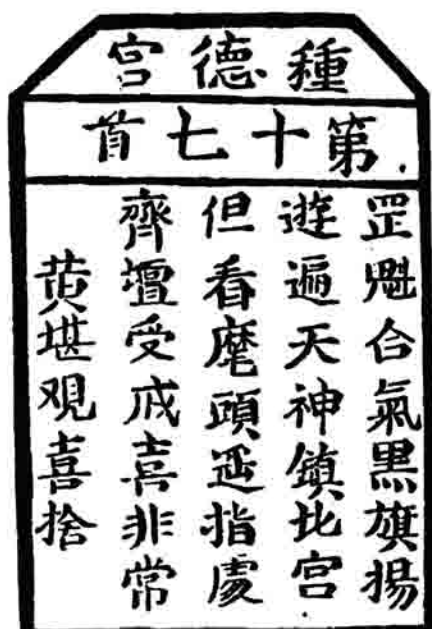 種德宮
第十七首
罡魁合氣黑旗揚
遊遍天神鎮北宮
但看麾頭迴指處
齊壇受戒喜非常
黃堪觀喜捨